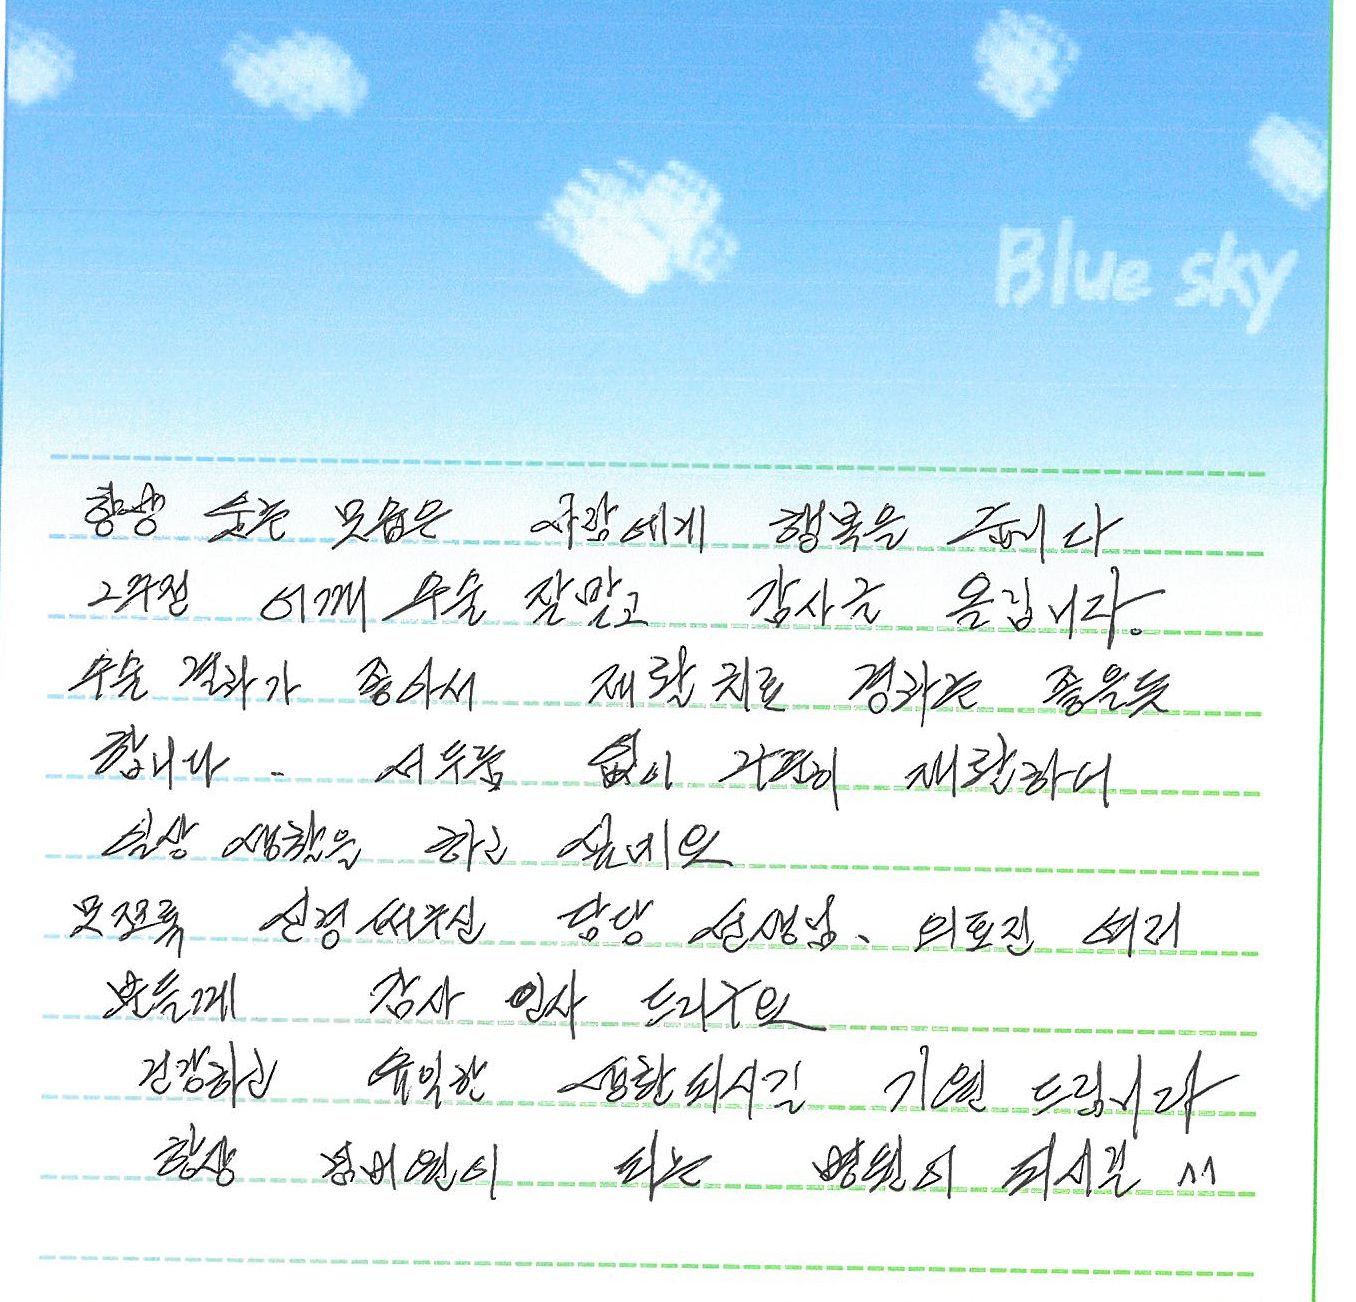 Blue sky
항상 웃는 모습은 사람에게 행복을 줍니다
2주전 어깨 수술 잘받고 감사글 올립니다.
수술 결과가 좋아서 재활치료 경과는 좋을듯
합니다. 서두름 없이 꾸준히 재활하여
일상 생활을 하고 싶네요
모쪼록 신경써주신 담당 선생님, 의료진 여러
분들께 감사 인사 드리구요
건강하고 유익한 생활되시길 기원 드립니다
항상 넘버원이 되는 병원이 되시길 ^^